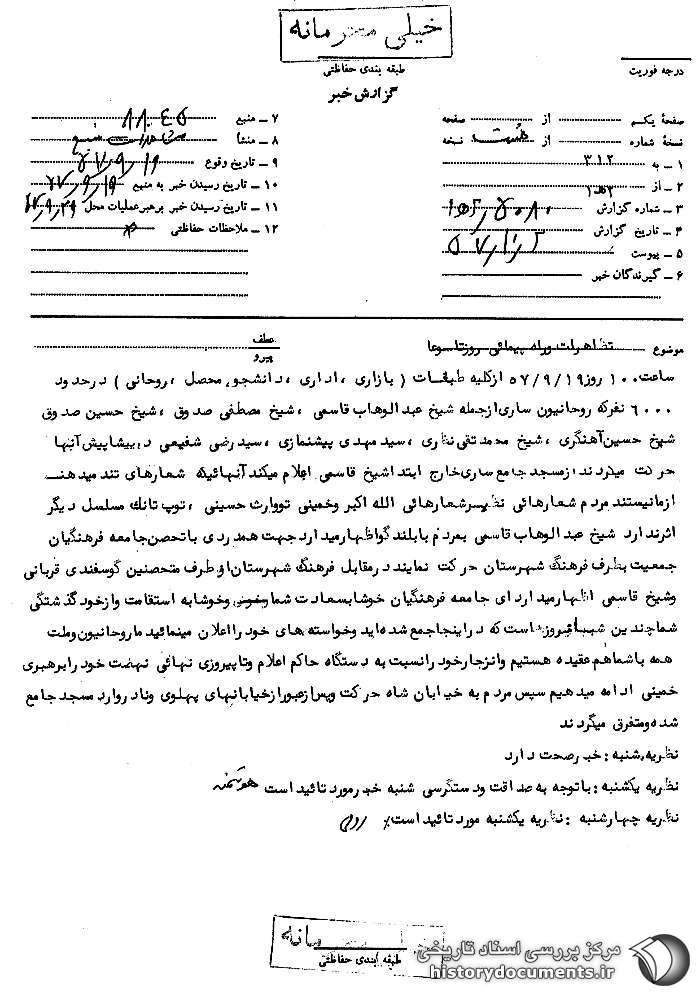 خیلی محرمانه
طبقه بندی حفاظتی
درجه فوریت
گزارش خبر
صفحهٔ یکم از صفحه
نسخهٔ شماره از نسخه
۱ ـ به ۳۱۲
۲ ـ از
۳ ـ شماره گزارش
۴ ـ تاریخ گزارش
۵ ـ پیوست
۶ ـ گیرندگان خبر
۷ ـ منبع
۸ ـ منشأ
۹ ـ تاریخ وقوع ۵۷/۹/۱۹
۱۰ ـ تاریخ رسیدن خبر به منبع
۱۱ ـ تاریخ رسیدن خبر برهبر عملیات محل
۱۲ ـ ملاحظات حفاظتی
موضوع تظاهرات و راه پیمائی روز تاسوعا
عطف
پیرو
ساعت ۱۰۰۰ روز ۵۷/۹/۱۹ از کلیه طبقات ( بازاری ، اداری ، دانشجو، محصل ، روحانی ) در حدود
۶۰۰۰ نفر که روحانیون ساری از جمله شیخ عبدالوهاب قاسمی ، شیخ مصطفی صدوق ، شیخ حسین صدوق
شیخ حسین آهنگری ، شیخ محمد تقی نظاری ، سید مهدی پیشنمازی ، سید رضی شفیعی در پیشاپیش آنها
حرکت میکردند از مسجد جامع ساری خارج ابتدا شیخ قاسمی اعلام میکند آنهائیکه شعارهای تند میدهند
از ما نیستند مردم شعارهائی نظیر شعارهائی الله اکبر و خمینی تو وارث حسینی ، توپ تانک مسلسل دیگر
اثر ندارد شیخ عبدالوهاب قاسمی بمردم با بلندگو اظهار میدارد جهت همدردی با تحصن جامعه فرهنگیان
جمعیت بطرف فرهنگ شهرستان حرکت نمایند در مقابل فرهنگ شهرستان از طرف متحصنین گوسفندی قربانی
و شیخ قاسمی اظهار میدارد ای جامعه فرهنگیان خوشا بسعادت شما و خوشا به استقامت و از خود گذشتگی
شما چندین شبانه روز است که در اینجا جمع شده اید و خواسته های خود را اعلان مینمائید ما روحانیون و ملت
همه با شما هم عقیده هستیم و انزجار خود را نسبت به دستگاه حاکم اعلام و تا پیروزی نهائی نهضت خود را برهبری
خمینی ادامه میدهیم سپس مردم به خیابان شاه حرکت و پس از عبور از خیابانهای پهلوی و نادر وارد مسجد جامع
شده و متفرق میگردند
نظریه شنبه : خبر صحت دارد
نظریه یکشنبه : با توجه به صداقت و دسترسی شنبه خبر مورد تائید است
نظریه چهارشنبه : نظریه یکشنبه مورد تائید است٪
طبقه بندی حفاظتی
مرکز بررسی اسناد تاریخی
historydocuments.ir